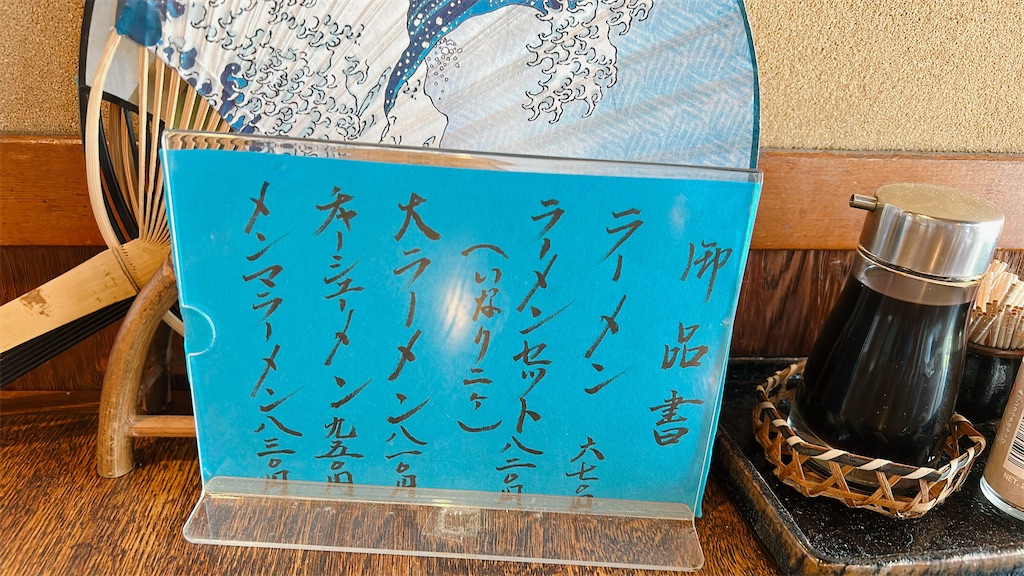 御品書
ラーメン 六七〇円
ラーメンセット 八二〇円
(いなり二ヶ)
大ラーメン 八一〇円
チャーシューメン 九五〇円
メンマラーメン 八三〇円